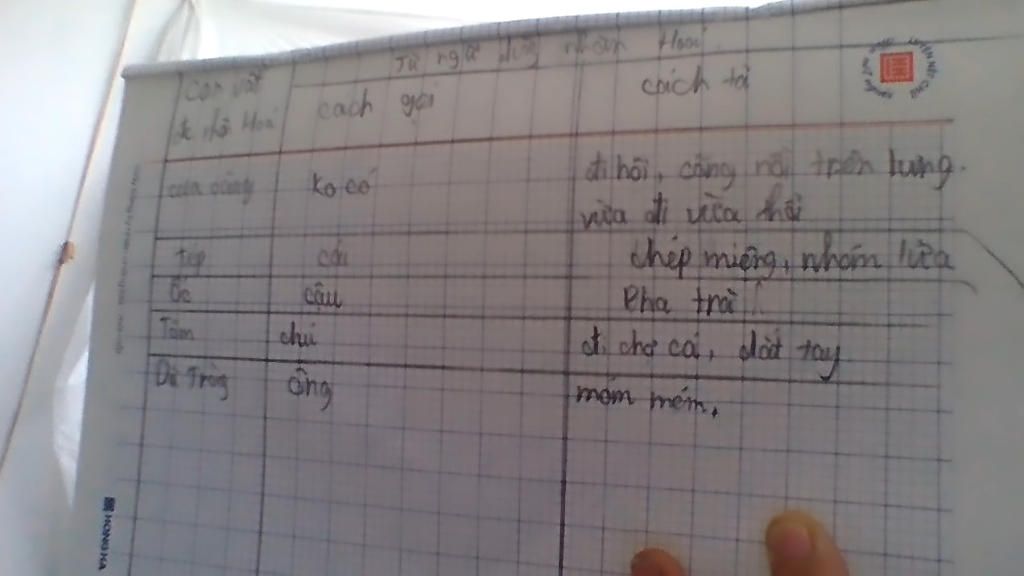 Từ ngữ dùng nhân Hoá
Con vật
đc nhõ Hoá
cách gọi
cách tả
con còng
ko có
đi hội, cõng nồi trên lưng.
vừa đi vừa thổi
Tép
cái
chép miệng, nhóm lửa
Ốc
cậu
Pha trà
Tôm
chú
đi chợ cá, dắt tay
Dã Tràng
ông
móm mém,
HONG HA